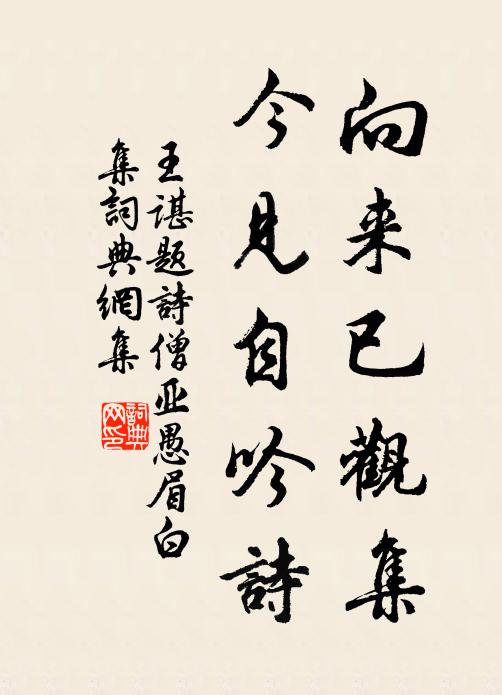 向来已觀集
今見自吟詩
王諶題詩僧亚愚眉白
集詞典網集
詞典
网印